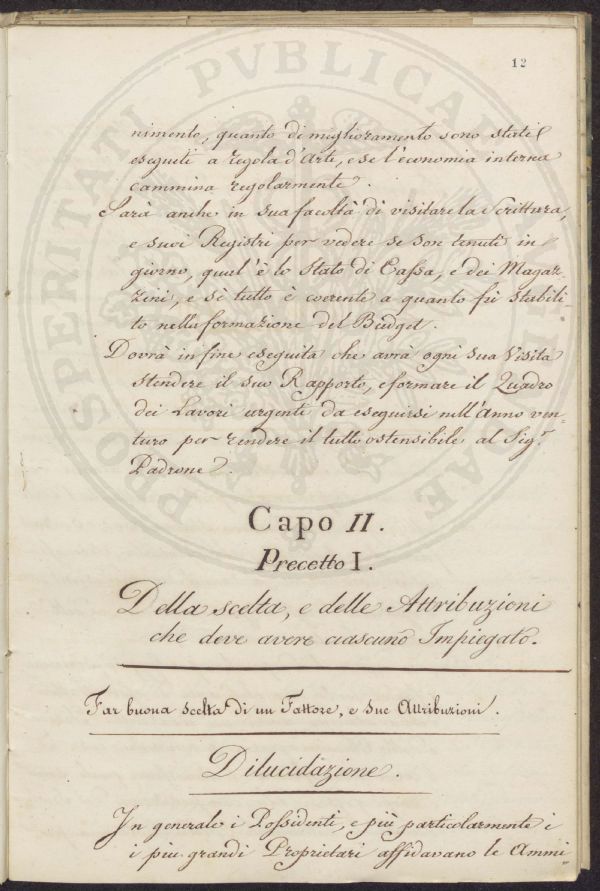 12
nimento, quanto di miglioramento sono stati
eseguiti a regola d'Arte, e se l'economia interna
cammina regolarmente.
Sarà anche in sua facoltà di visitare la Scrittura,
e suoi Registri per vedere se son tenuti in
giorno, qual'è lo Stato di Cassa, e dei Magaz-
zini, e si tutto è coerente a quanto fù stabili-
to nella formazione del Budget.
Dovrà in fine eseguita che avrà ogni sua Visita
stendere il suo Rapporto, e formare il Quadro
dei Lavori urgenti da eseguirsi nell'Anno ven-
turo per rendere il tutto ostensibile al Sig.r
Padrone.
Capo II.
Precetto I.
Della scelta, e delle Attribuzioni
che deve avere ciascuno Impiegato.
Far buona scelta di un Fattore, e sue Attribuzioni.
Dilucidazione.
In generale i Possidenti, e più particolarmente i
i piu grandi Proprietari affidavano le Ammi-
PROSPERITATI PVBLICAE